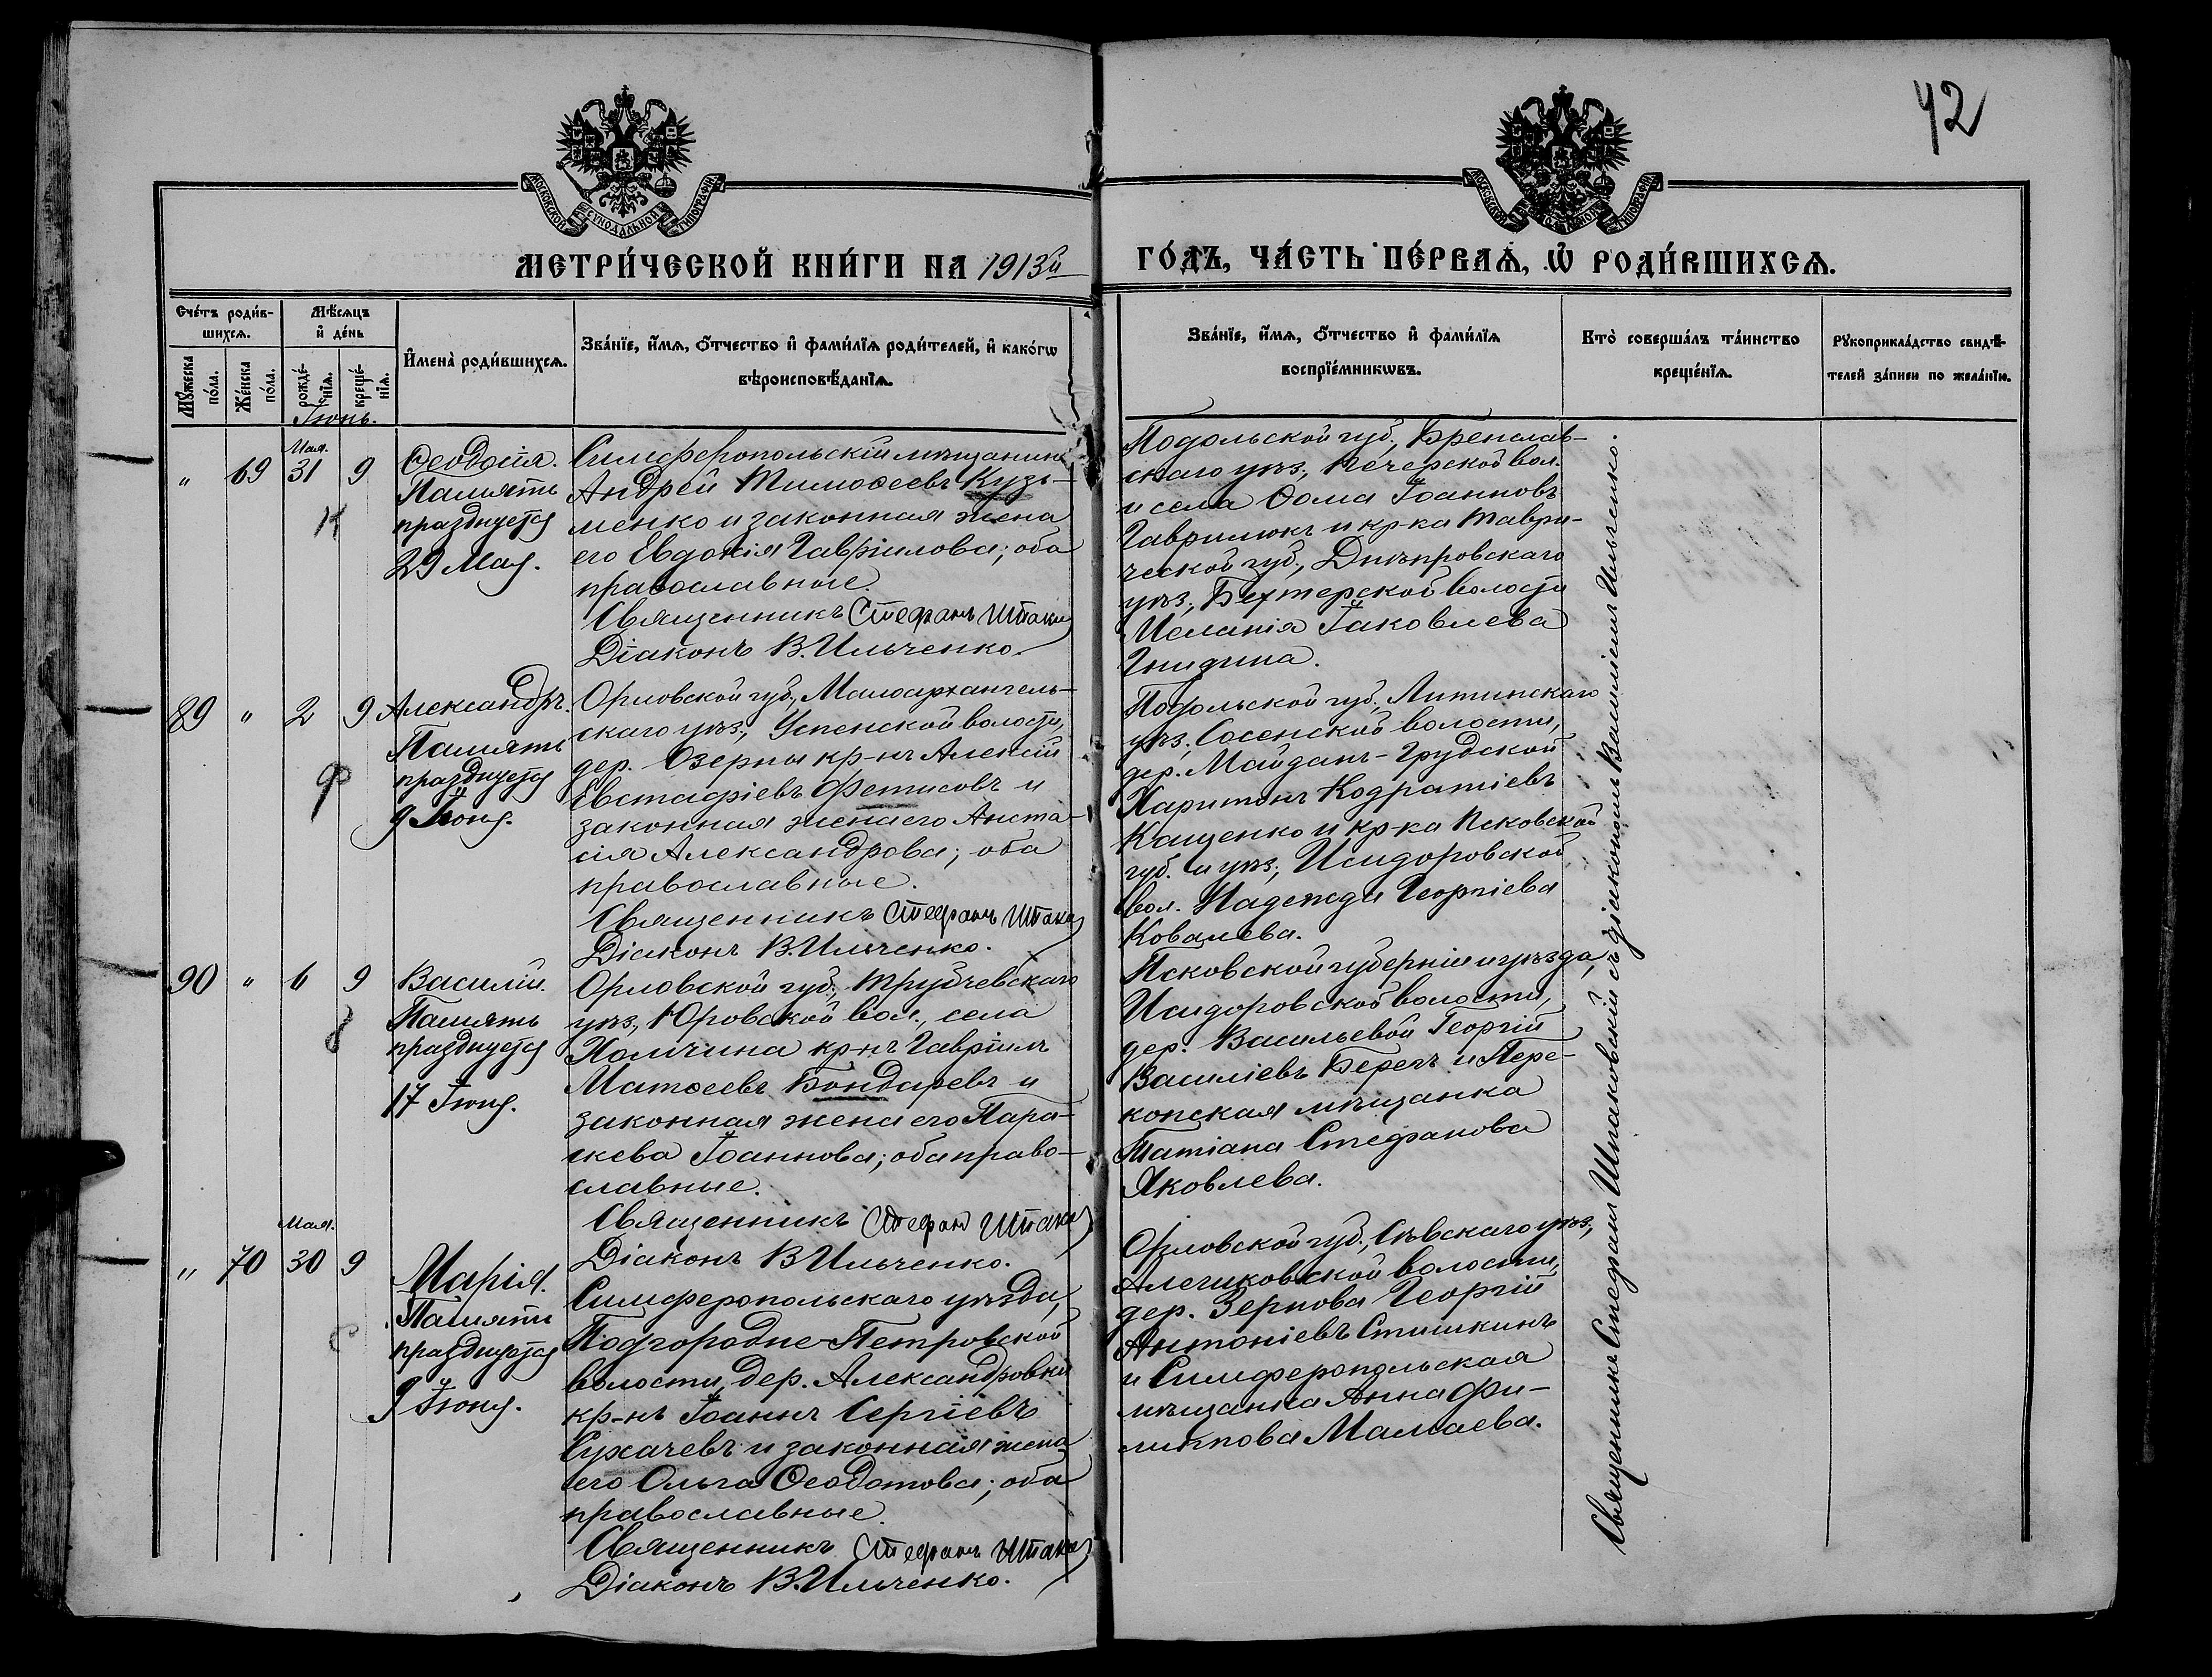 42
МОСКОВСКОЙ СѴНОДАЛЬНОЙ ТИПОГРАФІИ
МОСКОВСКОЙ СѴНОДАЛЬНОЙ ТИПОГРАФІИ
МЕТРИ́ЧЕСКОЙ КНИ́ГИ НА 1913й
ГО́ДЪ, ЧА́СТЬ ПЕ́РВАѦ, Ѡ РОДИ́ВШИХСѦ.
Сче́тъ роди́в-
шихсѧ.
Мꙋ́жеска по́ла.
Же́нска по́ла.
Мѣ́сѧцъ
и҆ де́нь
рожде́-
нїѧ.
креще́-
нїѧ.
И҆мена̀ роди́вшихсѧ.
Зва́нїе, и҆́мѧ, ѻ҆́тчество и҆ фами́лїѧ роди́телей, и҆ како́гѡ
вѣроисповѣ́данїѧ.
Зва́нїе, и҆́мѧ, ѻ҆́тчество и҆ фами́лїѧ
воспрїе́мникѡвъ.
Кто̀ соверша́лъ та́инство
креще́нїѧ.
Рꙋкоприкла́дство свидѣ́-
телей за́писи по жела́нїю.
Іюнь.
" 69 Мая. 31 9
Ѳеодосія.
Память
празднуется
29 Мая.
Симферопольскій мѣщанинъ
Андрей Тимоѳеевъ Кузь-
менко и законная жена
его Евдокія Гавріилова; оба
православные.
Священникъ Стефанъ Шпаков
Діаконъ В. Ильченко.
Подольской губ., Брецлав-
скаго уѣз., Печерской вол.
и села Ѳома Іоанновъ
Гаврилюкъ и кр-ка Таври-
ческой губ., Днѣпровскаго
уѣз., Бехтерской волости
Меланія Іаковлева
Гнидина.
89 " 2 9
Александръ.
Память
празднуется
9 Іюня.
Орловской губ., Малоархангель-
скаго уѣз., Успенской волости,
дер. Озерны кр-нъ Алексій
Евстафіевъ Фетисовъ и
законная жена его Анста-
сія Александрова; оба
православные.
Священникъ Стефанъ Шпаков
Діаконъ В. Ильченко.
Подольской губ., Литинскаго
уѣз. Сосенской волости,
дер. Майданъ-Грудской
Харитонъ Кодратіевъ
Кащенко и кр-ка Псковской
губ. и уѣз., Исидоровской
вол. Надежда Георгіева
Ковалева.
90 " 6 9
Василій.
Память
празднуется
17 Іюня.
Орловской губ., Трубчевскаго
уѣз., Юровской вол., села
Холмчина кр-нъ Гавріилъ
Матѳеевъ Бондаревъ и
законная жена его Пара-
скева Іоаннова; оба право-
славные.
Священникъ Стефанъ Шпаков
Діаконъ В. Ильченко.
Псковской губерніи и уѣзда,
Исидоровской волости,
дер. Васильевой Георгій
Василіевъ Береъ и Пере-
копская мѣщанка
Татіана Стефанова
Яковлева.
" 70 Мая. 30 9
Марія.
Память
празднуется
9 Іюня.
Симферопольскаго уѣзда,
Подгородне-Петровской
волости, дер. Александровки
кр-нъ Іоаннъ Сергіевъ
Сухачевъ и законная жена
его Ольга Ѳеодотова; оба
православные.
Священникъ Стефанъ Шпаков
Діаконъ В. Ильченко.
Орловской губ., Сѣвскаго уѣз.,
Алешковской волости,
дер. Зернова Георгій
Антоніевъ Стишкинъ
и Симферопольская
мѣщанка Анна Фи-
липпова Мамаева.
Священникъ Стефанъ Шпаковскій съ діакономъ Василіемъ Ильченко.